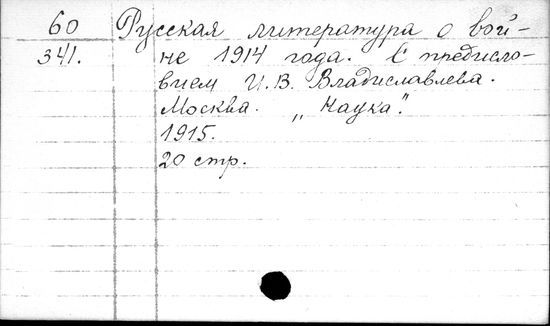 60 Русская литература о вой-
341. не 1914 года. С предисло-
вием И. В. Владиславлева.
Москва. „Наука".
1915.
20 стр.